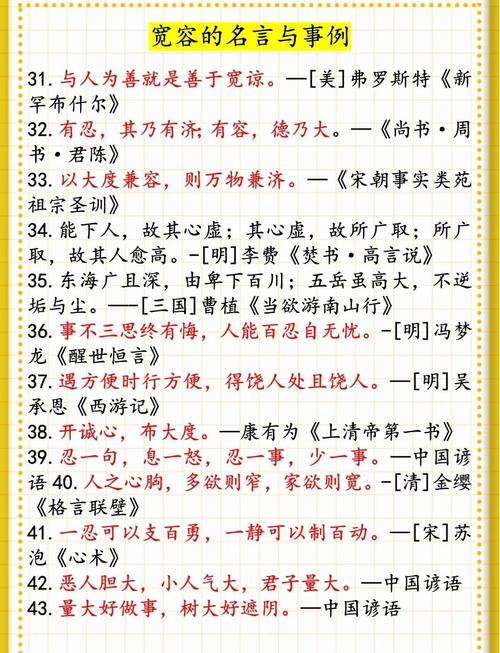 宽容的名言与事例
31.与人为善就是善于宽谅。—[美]弗罗斯特《新
罕布什尔》
32.有忍，其乃有济;有容，德乃大。—《尚书·周
书·君陈》
33.以大度兼容，则万物兼济。—《宋朝事实类苑
祖宗圣训》
34.能下人，故其心虚；其心虚，故所广取；所广
取，故其人愈高。-[明]李费《焚书·高言说》
35.东海广且深，由卑下百川；五岳虽高大，不逆
垢与尘。—-[三国]曹植《当欲游南山行》
36.事不三思终有悔，人能百忍自无忧。-[明]冯梦
龙《醒世恒言》
37.遇方便时行方便，得饶人处且饶人。—[明]吴
承恩《西游记》
38.开诚心，布大度。—康有为《上清帝第一书》
39.忍一句，息一怒，忍一事，少一事。—中国谚
语 40.人之心胸，多欲则窄，家欲则宽。-[清]金缨
《格言联壁》
41.一忍可以支百勇，一静可以制百动。—[宋]苏
泡《心术》
42.恶人胆大，小人气大，君子量大。—中国谚语
43.量大好做事，树大好遮阴。—中国谚语